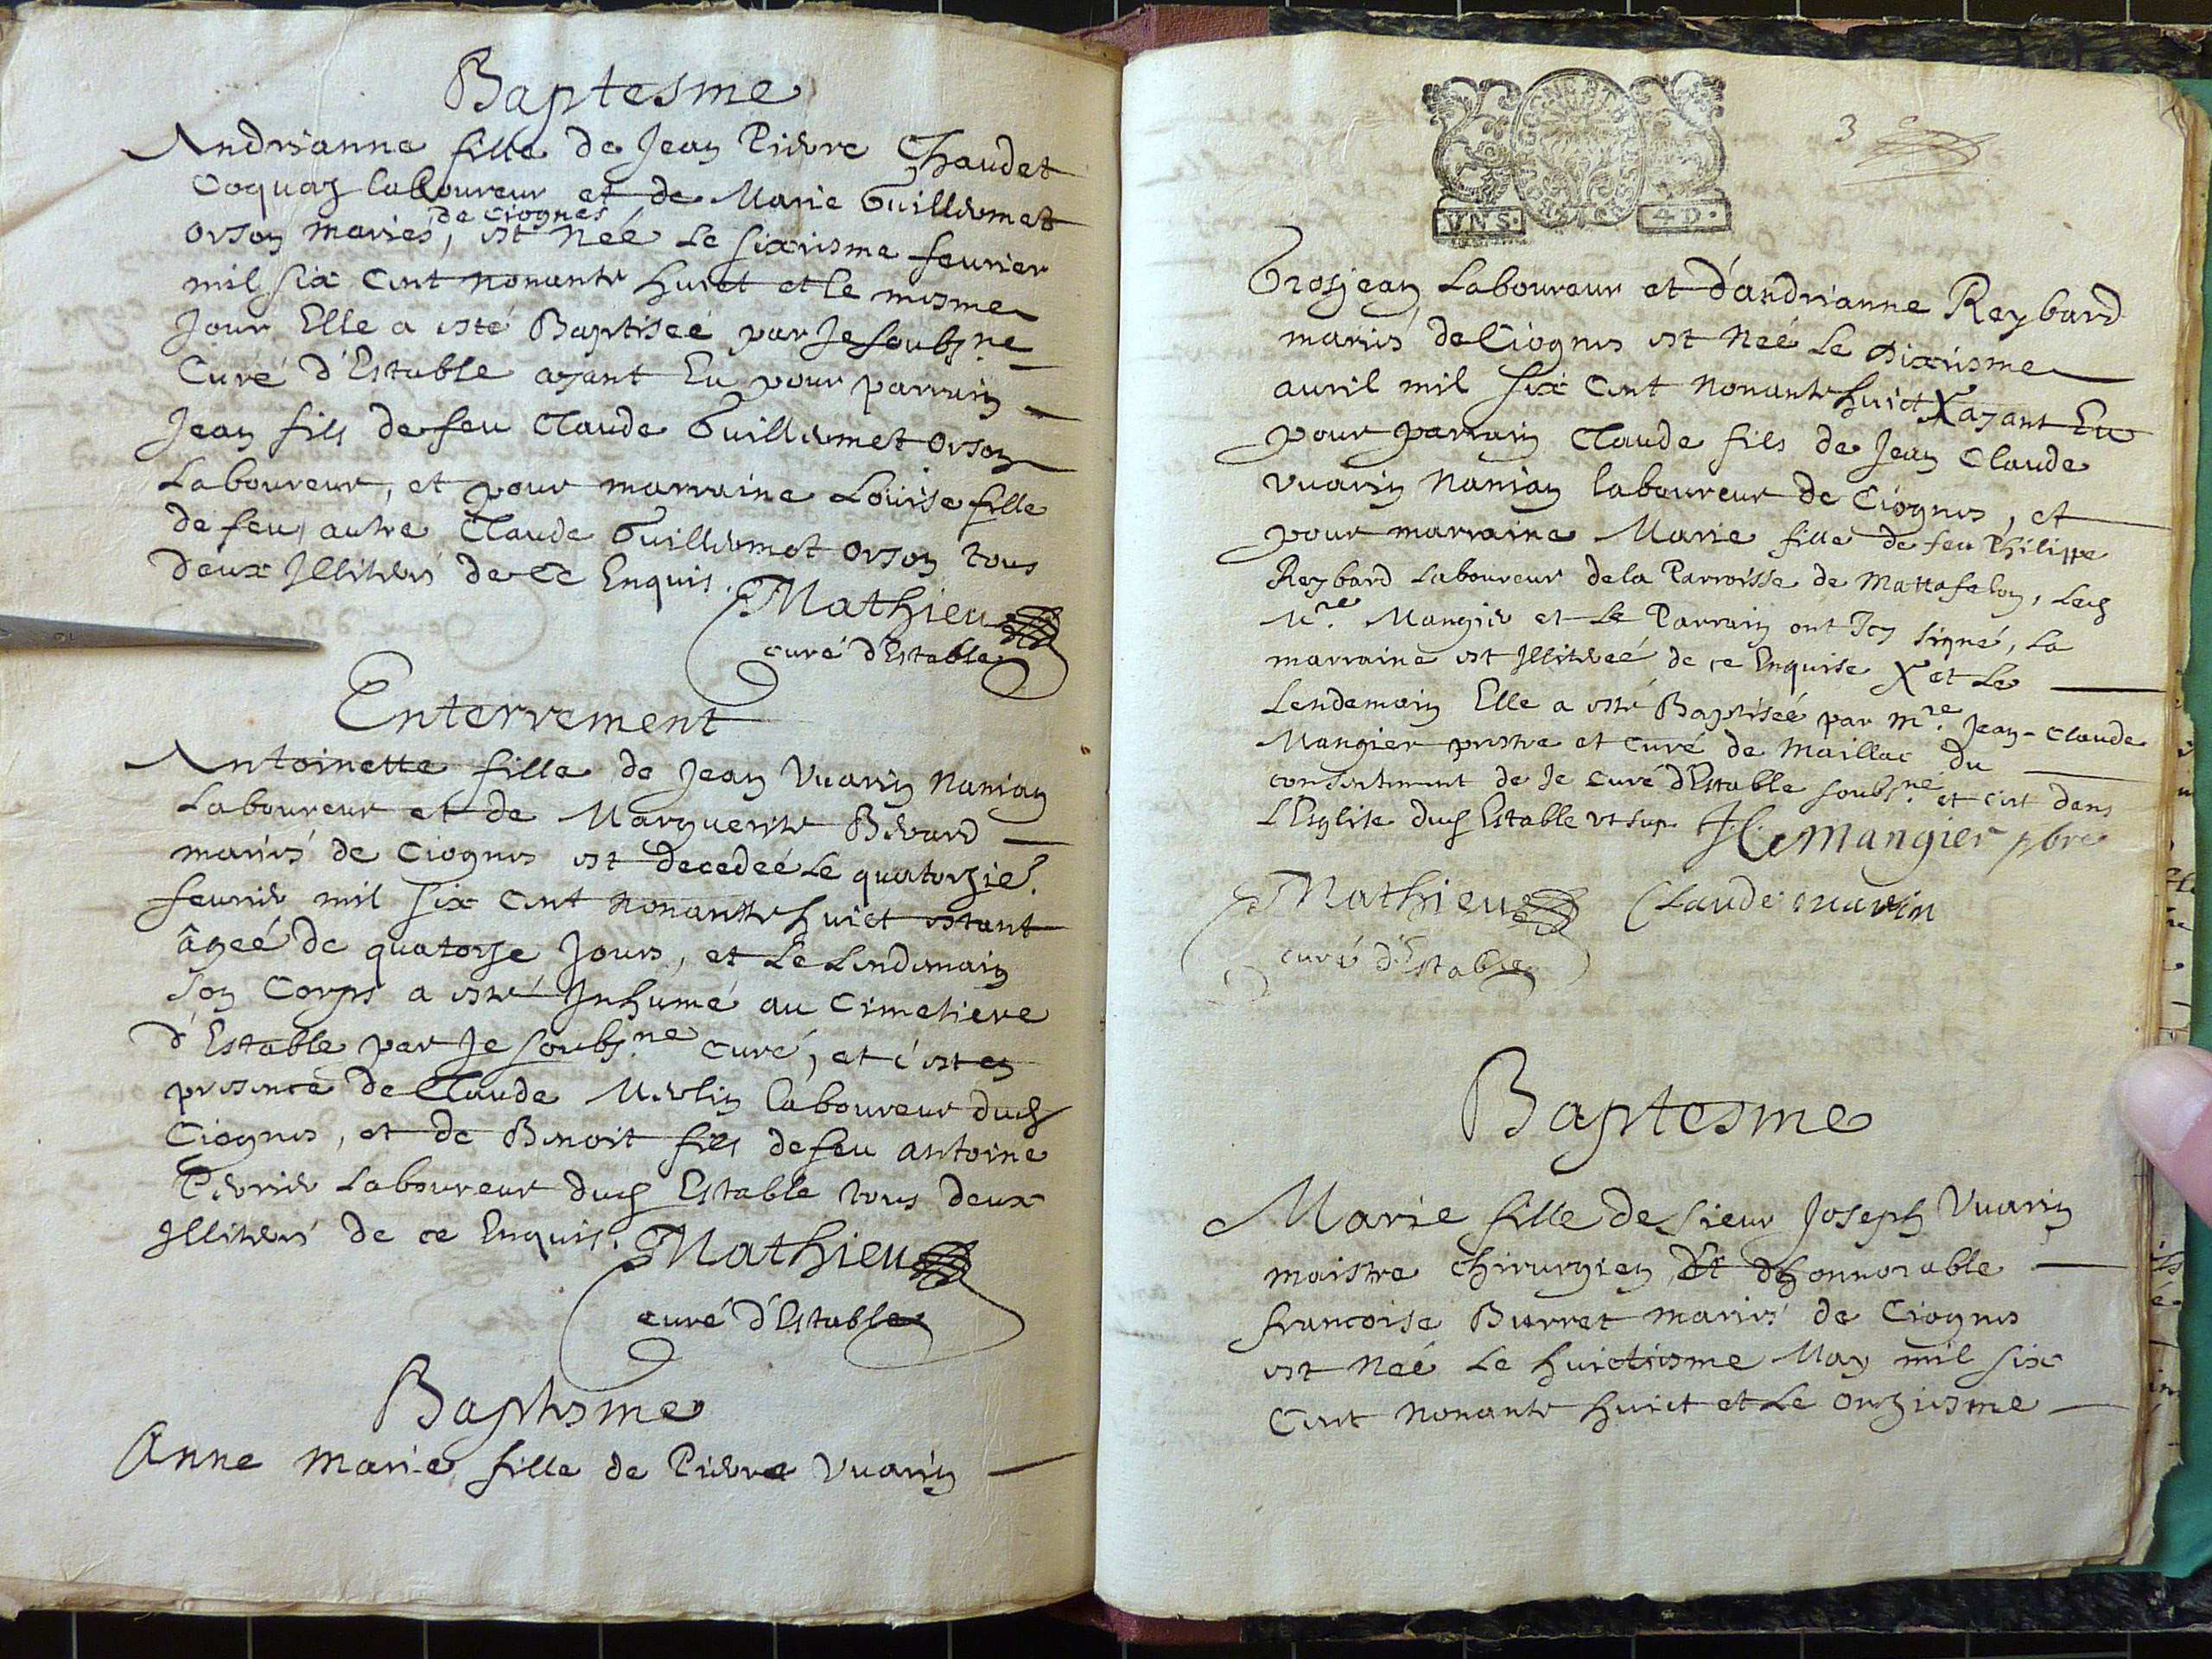 Baptesme
Andrianne fille de Jean Pierre Chaudet
Coquaz laboureur et de Marie Guillermet
de Ciognes
Orson mariés, est Neé Le sixiesme feurier
mil six Cent nonante huict et le mesme
Jour Elle a esté Baptiseé par Je soubs.né
Curé d'Estable ayant Eu pour parrain
Jean fils de feu Claude Guillermet Orson
Laboureur, et pour marraine Loüise fille
de feu autre Claude Guillermet Orson tous
deux Illiterés de ce Enquis.
Mathieu
curé d'Estable
Enterrement
Antoinette fille de Jean Vuarin Nanian
Laboureur et de Marguerite Berard
mariés de Ciognes est decedeé Le quatorzie.
feurier mil six Cent nonante huict estant
âgeé de quatorze Jours, et Le Lendemain
son Corps a esté Inhumé au Cimetiere
d'Estable par Je soubs.né curé, et c'est en
presence de Claude Merlin laboureur dud
Ciognes, et de Benoit fils de feu antoine
Perrier Laboureur dud Estable tous deux
Illiterés de ce Enquis.
Mathieu
curé d'Estable
Baptesme
Anne Marie fille de Pierre Vuarin
VN S.
4 D.
3
Grosjean Laboureur et d'andrianne Reybard
mariés de Ciognes est Neé Le dixiesme
auril mil six Cent nonante huict X ayant Eu
pour parrain Claude fils de Jean Claude
Vuarin Nanian laboureur de Ciognes, et
pour marraine Marie fille de feu Philippe
Reybard Laboureur de la Parroisse de Mattafelon, Led
M.re Mangier et Le Parrain ont Icy signé, La
marraine est Illitereé de ce Enquise X et Le
Lendemain Elle a esté Baptiseé par m.re Jean-Claude
Mangier prestre et curé de Maillac du
consentement de Je curé d'Estable soubs.né et c'est dans
L'Esglise dud Estable vt sup.
J C Mangier pbre
Mathieu Claude vuarin
curé d'Estable
Baptesme
Marie fille de sieur Joseph Vuarin
maistre chirurgien Et d'honnorable
francoise Burret mariés de Ciognes
est Neé Le huictiesme May mil six
Cent nonante huict et Le onziesme